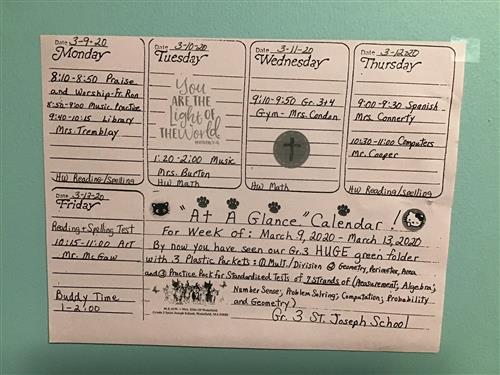 Date 3-9-20
Monday
8:10-8:50 Praise
and Worship-Fr. Ron
8:50-9:00 Music Practice
9:40-10:15 Library
Mrs. Tremblay
HW Reading/Spelling
Date 3-10-20
Tuesday
You
ARE THE
Light of
THE World
MATTHEW 5:14
1:20-2:00 Music
Mrs. Burton
HW Math
Date 3-11-20
Wednesday
9:10-9:50 Gr. 3+4
Gym - Mrs. Condon
HW Math
Date 3-12-20
Thursday
9:00-9:30 Spanish
Mrs. Connerty
10:30-11:00 Computers
Mr. Cooper
HW Reading/Spelling
Date 3-13-20
Friday
Reading + Spelling Test
10:15-11:00 Art
Mr. McGaw
Buddy Time
1-2:00
"At A Glance" Calendar!
For Week of: March 9, 2020 - March 13, 2020
By now you have seen our Gr. 3 HUGE green folder
with 3 Plastic Packets: ① Mult/Division ② Geometry, Perimeter, Area
and ③ Practice Pack for Standardized Tests of 7 Strands of (Measurement; Algebra;
Number Sense; Problem Solving; Computation; Probability
and Geometry)
Gr. 3 ST. Joseph School
Grade 3 Saint Joseph School, Wakefield, MA